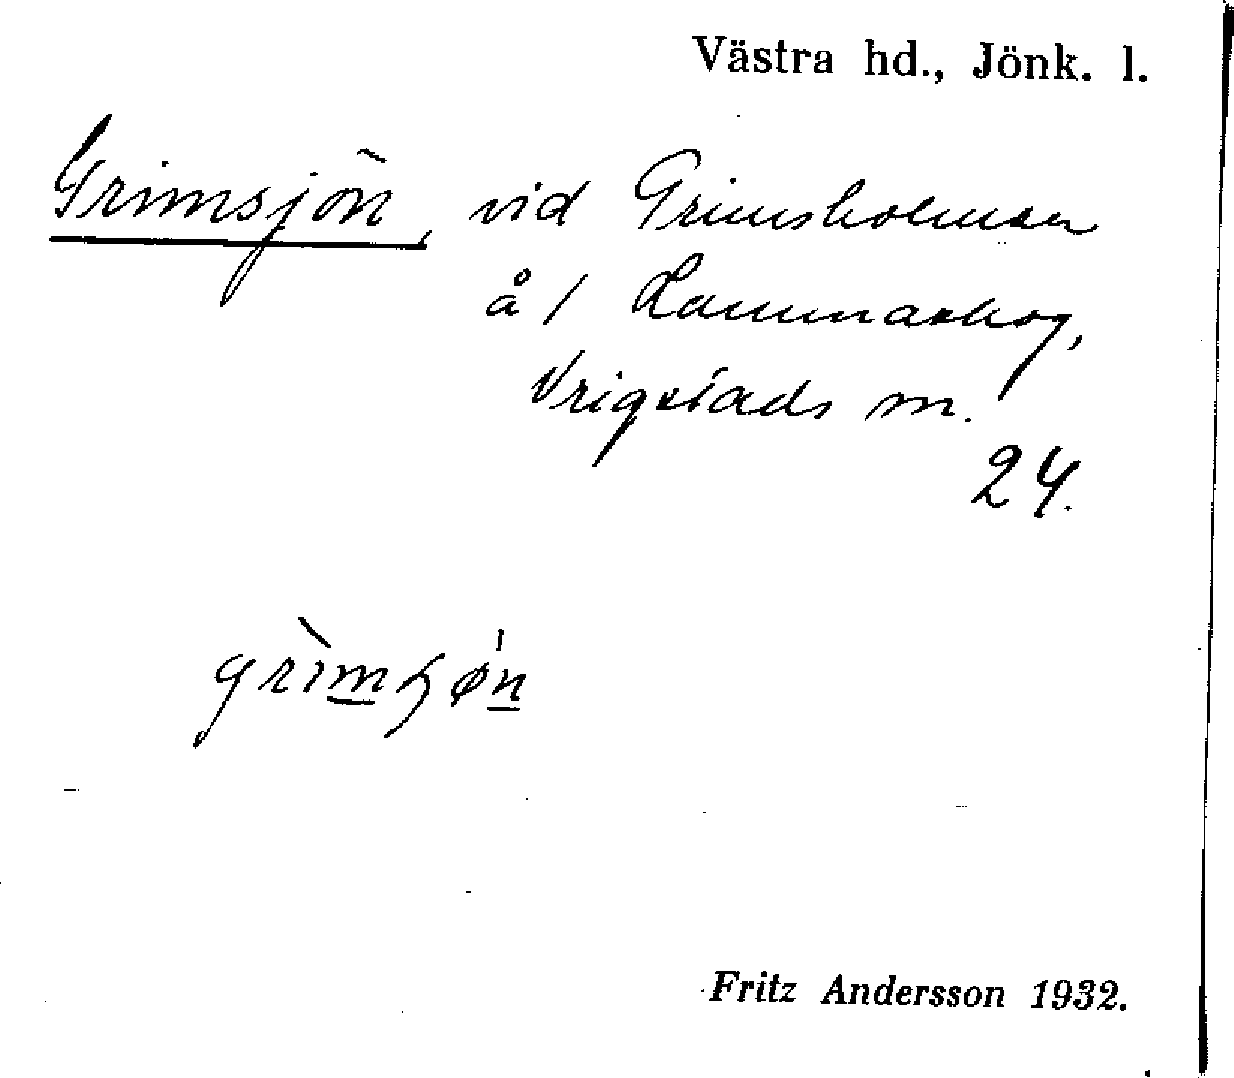 Västra hd., Jönk. l.
Grimsjön, vid Grimsholmen
å / Lammaskog,
Vrigstads m.
24.
grìmʂø'n
Fritz Andersson 1932.